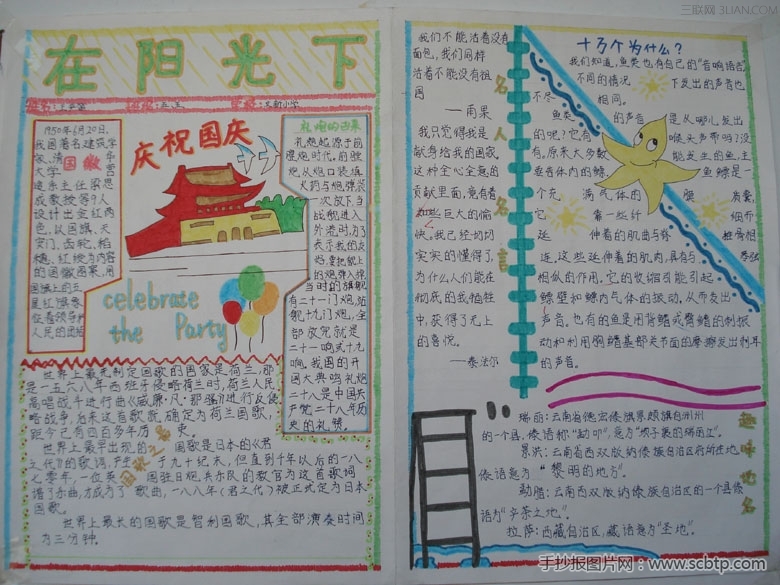 三联网 3LIAN.COM
在阳光下
庆祝国庆
celebrate
the Party
1950年6月20日,
我国著名建筑学
家、清华
大学营
建系主任梁思
成教授等9人
设计出金红两
色,以国旗、天
安门、齿轮、稻
穗、红绶为内容
的国徽图案,用
国旗上的五
星红旗象
征着领导
人民的
国徽
礼炮的由来
礼炮起源于前
膛炮时代。前膛
炮从炮口装填
火药与炮弹,装
一次放下,当
战舰进入
外港时,为了
表示我的友
好,要把舰上
的炮弹入
当时的旗舰
有二十一门炮,站
舰十九门炮,全
部放完就是
二十一响或十九
响,我国的开
国大典鸣礼炮
二十八是中国共
产党二十八年历
史的礼赞。
世界上最先制定国歌的国家是荷兰,那
是一五六八年西班牙侵略荷兰时,荷兰人民
高唱战斗进行曲《威廉·凡·那骚》进行反侵
略战争,后来这首歌就确定为荷兰国歌,
距今已有四百多年历史。
世界上最早出现的国歌是日本的《君
之代》的歌词,产生于九十纪末,但直到千年以后的一八
七零年,一位英国驻日炮兵乐队的教官为这首歌词
谱了乐曲,才成为了歌曲,一八八年《君之代》被正式定为日本
国歌。
世界上最长的国歌是智利国歌,其全部演奏时间
为三分钟。
我们不能活着没有
面包,我们同样
活着不能没有祖
国
——雨果
我只觉得我是
献身给我的国家。
这种全心全意的
贡献里面,竟有着
些巨大的愉
快。我已经切切
实实的懂得了,
为什么人们能在
彻底的自我牺牲
中,获得了无上
的喜悦。
——泰法尔
名人名言
十万个为什么?
我们知道,鱼类也有自己的"音响语言"
不同的情况下发出的声音也
不尽相同。
鱼类的声音是从哪儿发出
的呢?它有喉头声带吗?没
有。原来大多数能发生的鱼,主
要靠体内的鳔。鱼鳔是一
个充满气体的膜质囊,
它靠一些纤细而
延伸着的肌曲与脊椎骨相
连,这些延伸着的肌肉,具有与琴弦
相似的作用。它的收缩可能引起
鳔壁和鳔内气体的振动,从而发出
声音。也有的鱼是用背鳍或臀鳍的刺振
动和利用胸鳍基部关节面的摩擦发出刺耳
的声音。
趣味地名
瑞丽:云南省德宏傣族景颇族自治州
的一个县,傣语称"勐卯",意为
景洪:云南省西双版纳傣族自治区府所在地。
傣语意为"黎明的地方"。
勐腊:云南西双版纳傣族自治区的一个县傣
语为"产茶之地"。
拉萨:西藏自治区,藏语意为"圣地"。
手抄报图片网:www.scbtp.com